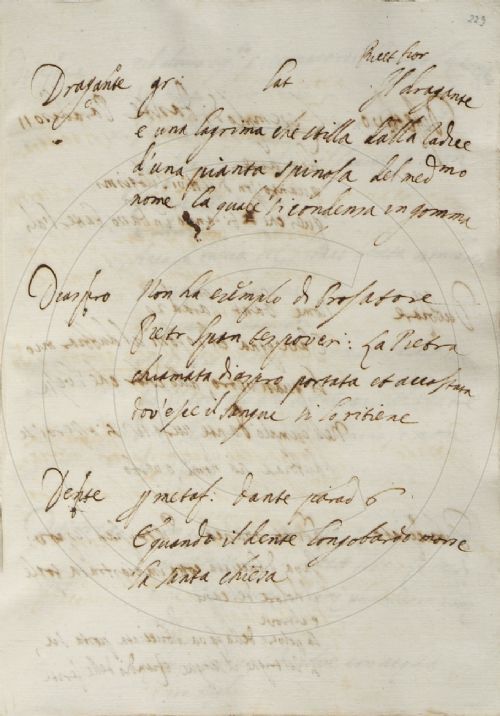 223
Ricet fior
Dragante gr: lat Il dragante
e una lagrima che stilla dalla radice
d'una pianta spinosa del med.mo
nome la quale si condensa in gomma
Diaspro Non ha esemplo di Prosatore
Pietr Span tes poveri: La Pietra
chiamata diaspro portata et accostata
dov'esce il sangue si lo ritiene
Dente metaf: Dante parad 6
E quando il dente longobardo morse
la santa chiesa